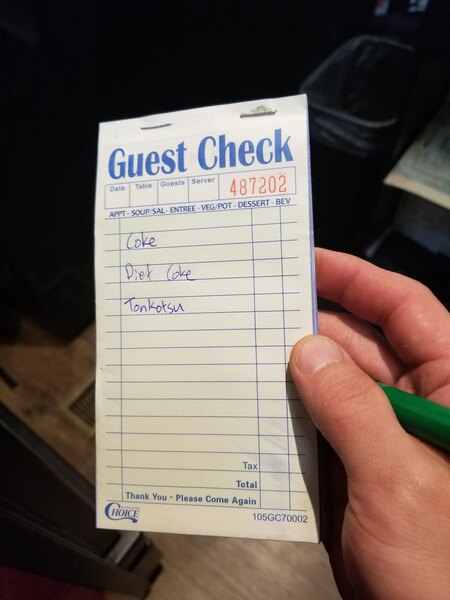 Guest Check
Date Table Guests Server 487202
APPT - SOUP/SAL - ENTREE - VEG/POT - DESSERT - BEV
Coke
Diet Coke
Tonkotsu
Tax
Total
Thank You - Please Come Again
CHOICE 105GC70002